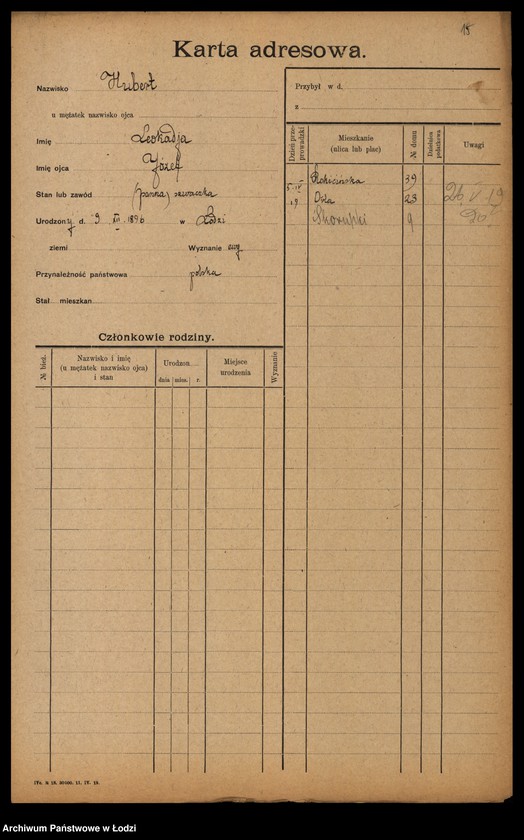 15
Karta adresowa.
Nazwisko Hubert
u mężatek nazwisko ojca
Imię Leokadja
Imię ojca Józef
Stan lub zawód (panna) szwaczka
Urodzony d. 9 XII 1896 w Łodzi
ziemi Wyznanie ewg
Przynależność państwowa polska
Stał. mieszkan.
Członkowie rodziny.
№ bież.
Nazwisko i imię
(u mężatek nazwisko ojca)
i stan
Urodzon.
dnia mies. r.
Miejsce
urodzenia
Wyznanie
Przybył w d.
z
Dzień prze-
prowadzki
Mieszkanie
(ulica lub plac)
№ domu
Dzielnica
podatkowa
Uwagi
Rokicińska 39
19 Orla 23 26 V 19
Skorupki 9
Archiwum Państwowe w Łodzi